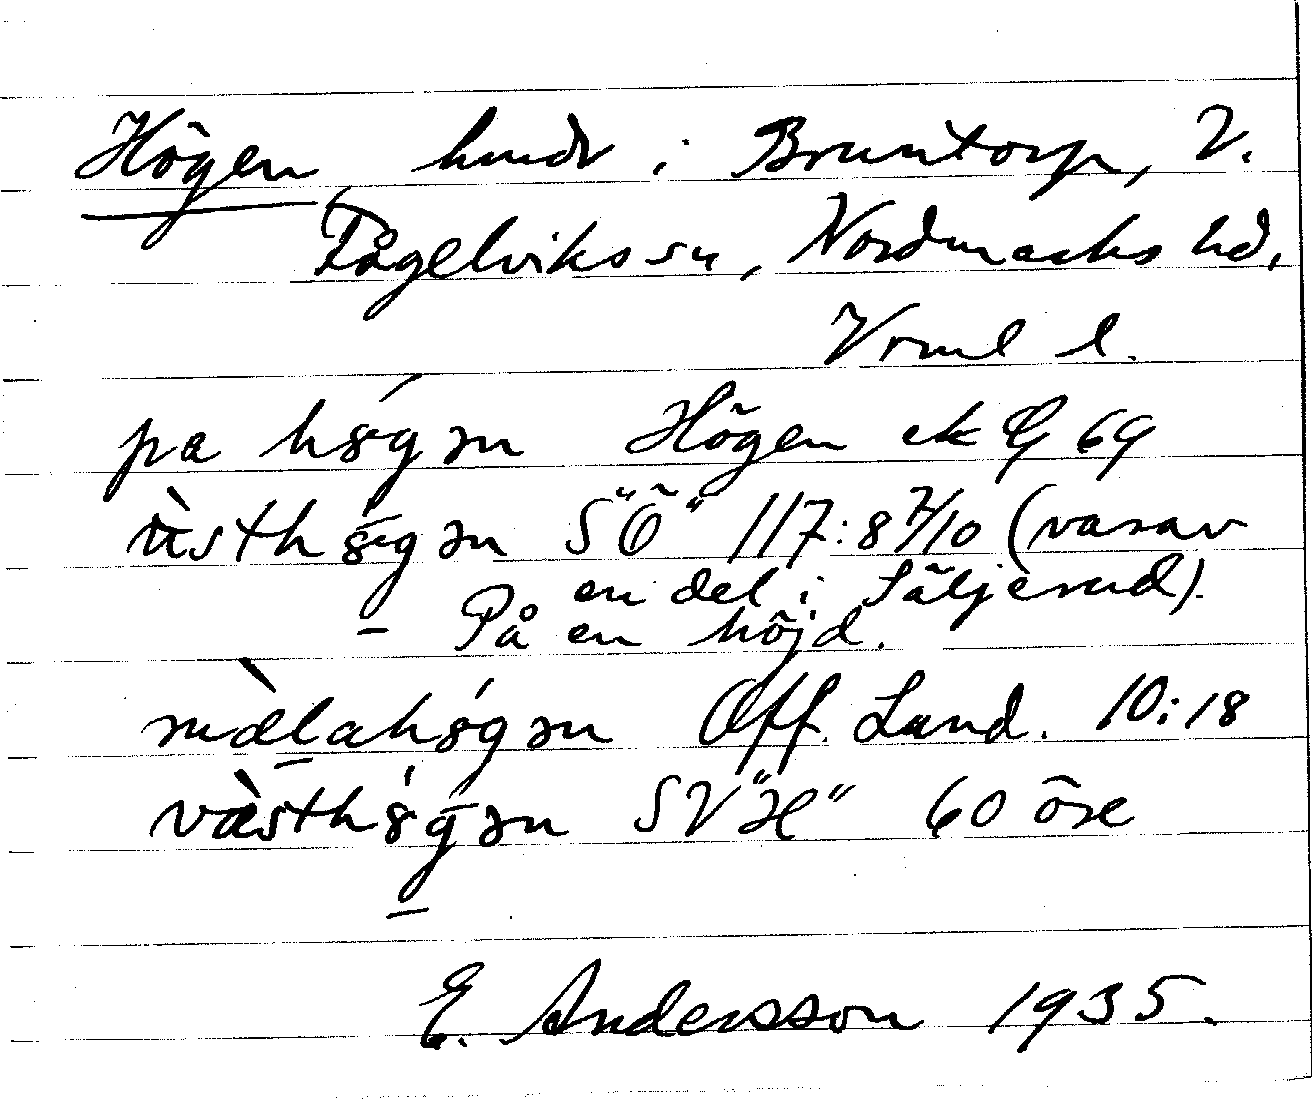 Högen, hmdr i Bruntorp, V.
Fågelviks sn, Nordmarks hd,
Vrml l.
pa hǿgən Högen ek G 69
ùsthǿgən SÖ "Ö" 117:8 7/10 (varav
en del i Säljerud).
– På en höjd.
mæ̀lahǿgən Off. Land. 10:18
væ̀sthǿgən SV "H" 60 öre
E. Andersson 1935.